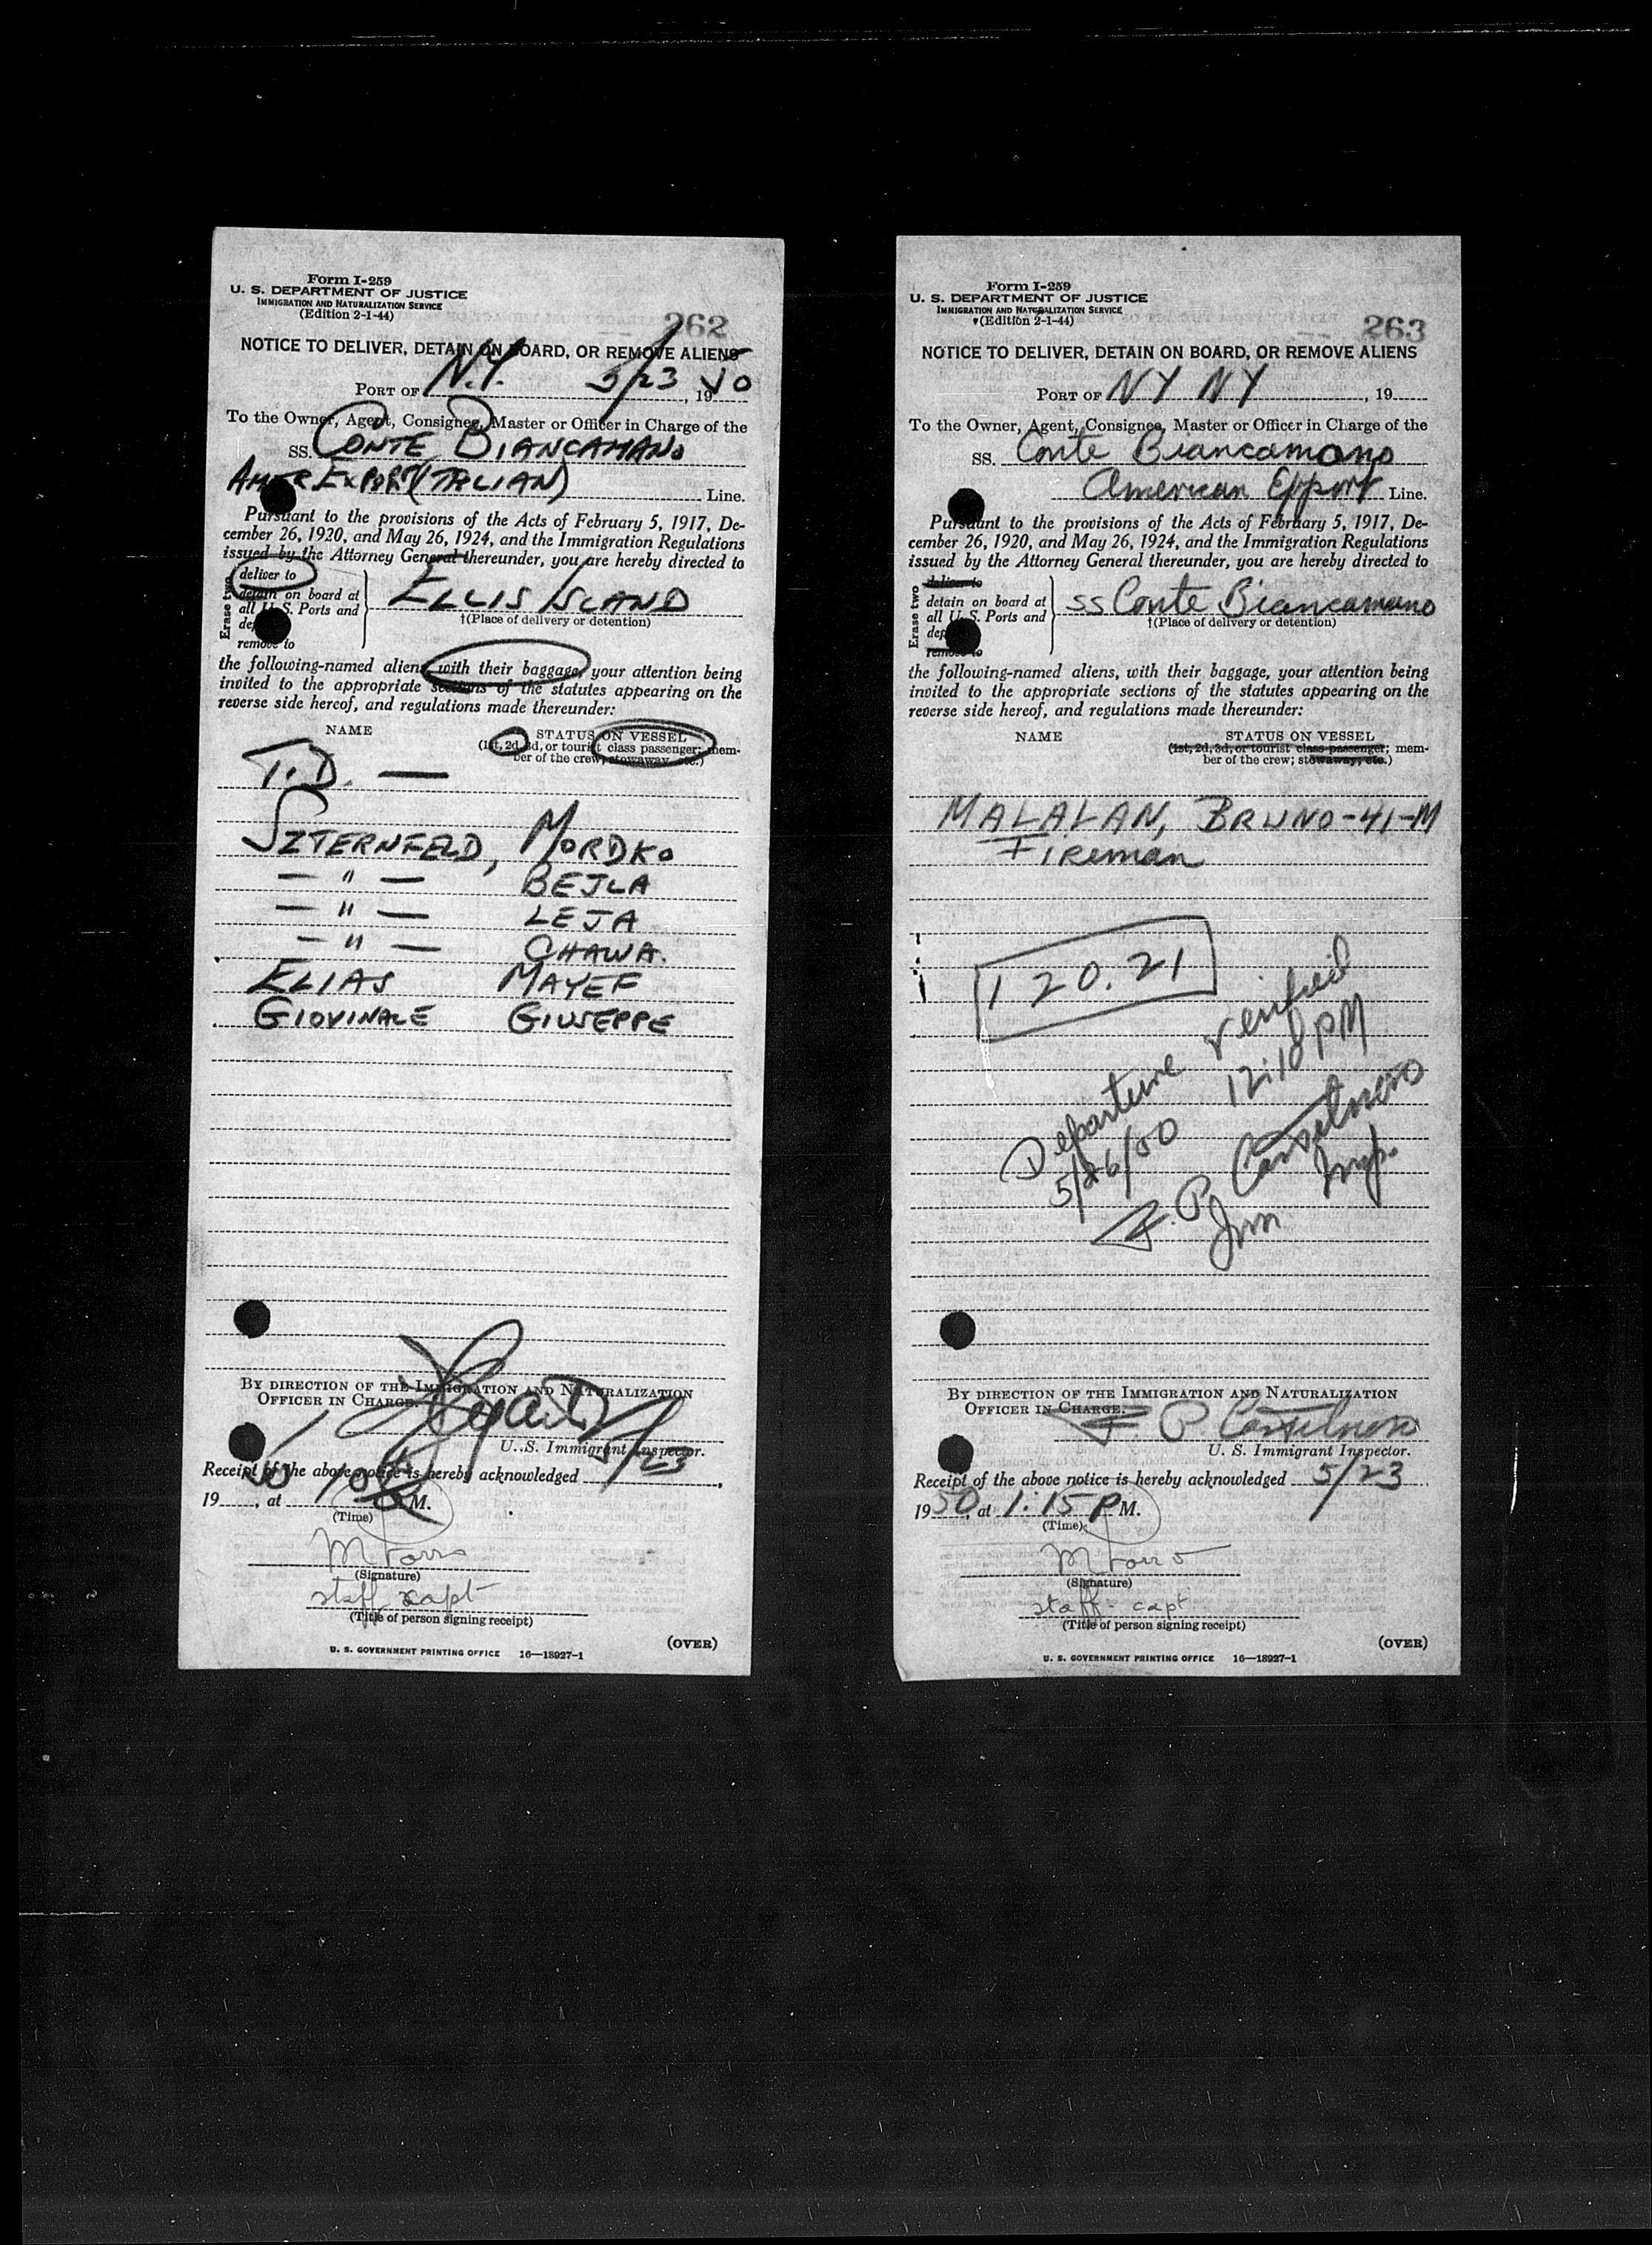 Form I-259
U. S. DEPARTMENT OF JUSTICE
IMMIGRATION AND NATURALIZATION SERVICE
(Edition 2-1-44)
262
NOTICE TO DELIVER, DETAIN ON BOARD, OR REMOVE ALIENS
PORT OF N.Y. 5/23, 1950
To the Owner, Agent, Consignee, Master or Officer in Charge of the
SS. CONTE BIANCAMANO
AMER EXPORT (ITALIAN) Line.
Pursuant to the provisions of the Acts of February 5, 1917, De-
cember 26, 1920, and May 26, 1924, and the Immigration Regulations
issued by the Attorney General thereunder, you are hereby directed to
Erase two
deliver to
detain on board at
all U. S. Ports and
remove to
ELLIS ISLAND
†(Place of delivery or detention)
the following-named aliens, with their baggage, your attention being
invited to the appropriate sections of the statutes appearing on the
reverse side hereof, and regulations made thereunder:
NAME
STATUS ON VESSEL
(1st, 2d, 3d, or tourist class passenger; mem-
ber of the crew; stowaway, etc.)
T.D. —
SZTERNFELD, MORDKO
— " — BEJLA
— " — LEJA
— " — CHAWA.
ELIAS MAYEF
GIOVINALE GIUSEPPE
BY DIRECTION OF THE IMMIGRATION AND NATURALIZATION
OFFICER IN CHARGE.
U. S. Immigrant Inspector.
Receipt of the above notice is hereby acknowledged 5/23,
19 50, at M.
(Time)
(Signature)
staff capt
(Title of person signing receipt)
U. S. GOVERNMENT PRINTING OFFICE 16—18927-1
(OVER)
Form I-259
U. S. DEPARTMENT OF JUSTICE
IMMIGRATION AND NATURALIZATION SERVICE
(Edition 2-1-44)
263
NOTICE TO DELIVER, DETAIN ON BOARD, OR REMOVE ALIENS
PORT OF NY NY, 19
To the Owner, Agent, Consignee, Master or Officer in Charge of the
SS. Conte Biancamano
American Export Line.
Pursuant to the provisions of the Acts of February 5, 1917, De-
cember 26, 1920, and May 26, 1924, and the Immigration Regulations
issued by the Attorney General thereunder, you are hereby directed to
Erase two
deliver to
detain on board at
all U. S. Ports and
remove to
SS Conte Biancamano
†(Place of delivery or detention)
the following-named aliens, with their baggage, your attention being
invited to the appropriate sections of the statutes appearing on the
reverse side hereof, and regulations made thereunder:
NAME
STATUS ON VESSEL
(1st, 2d, 3d, or tourist class passenger; mem-
ber of the crew; stowaway, etc.)
MALALAN, BRUNO-41-M
Fireman
120.21
Departure verified
5/26/50 12:10 PM
F. P. Castelnovo
Imm Insp.
BY DIRECTION OF THE IMMIGRATION AND NATURALIZATION
OFFICER IN CHARGE.
F. P. Castelnovo
U. S. Immigrant Inspector.
Receipt of the above notice is hereby acknowledged 5/23
19 50, at 1:15 P M.
(Time)
(Signature)
staff- capt
(Title of person signing receipt)
U. S. GOVERNMENT PRINTING OFFICE 16—18927-1
(OVER)